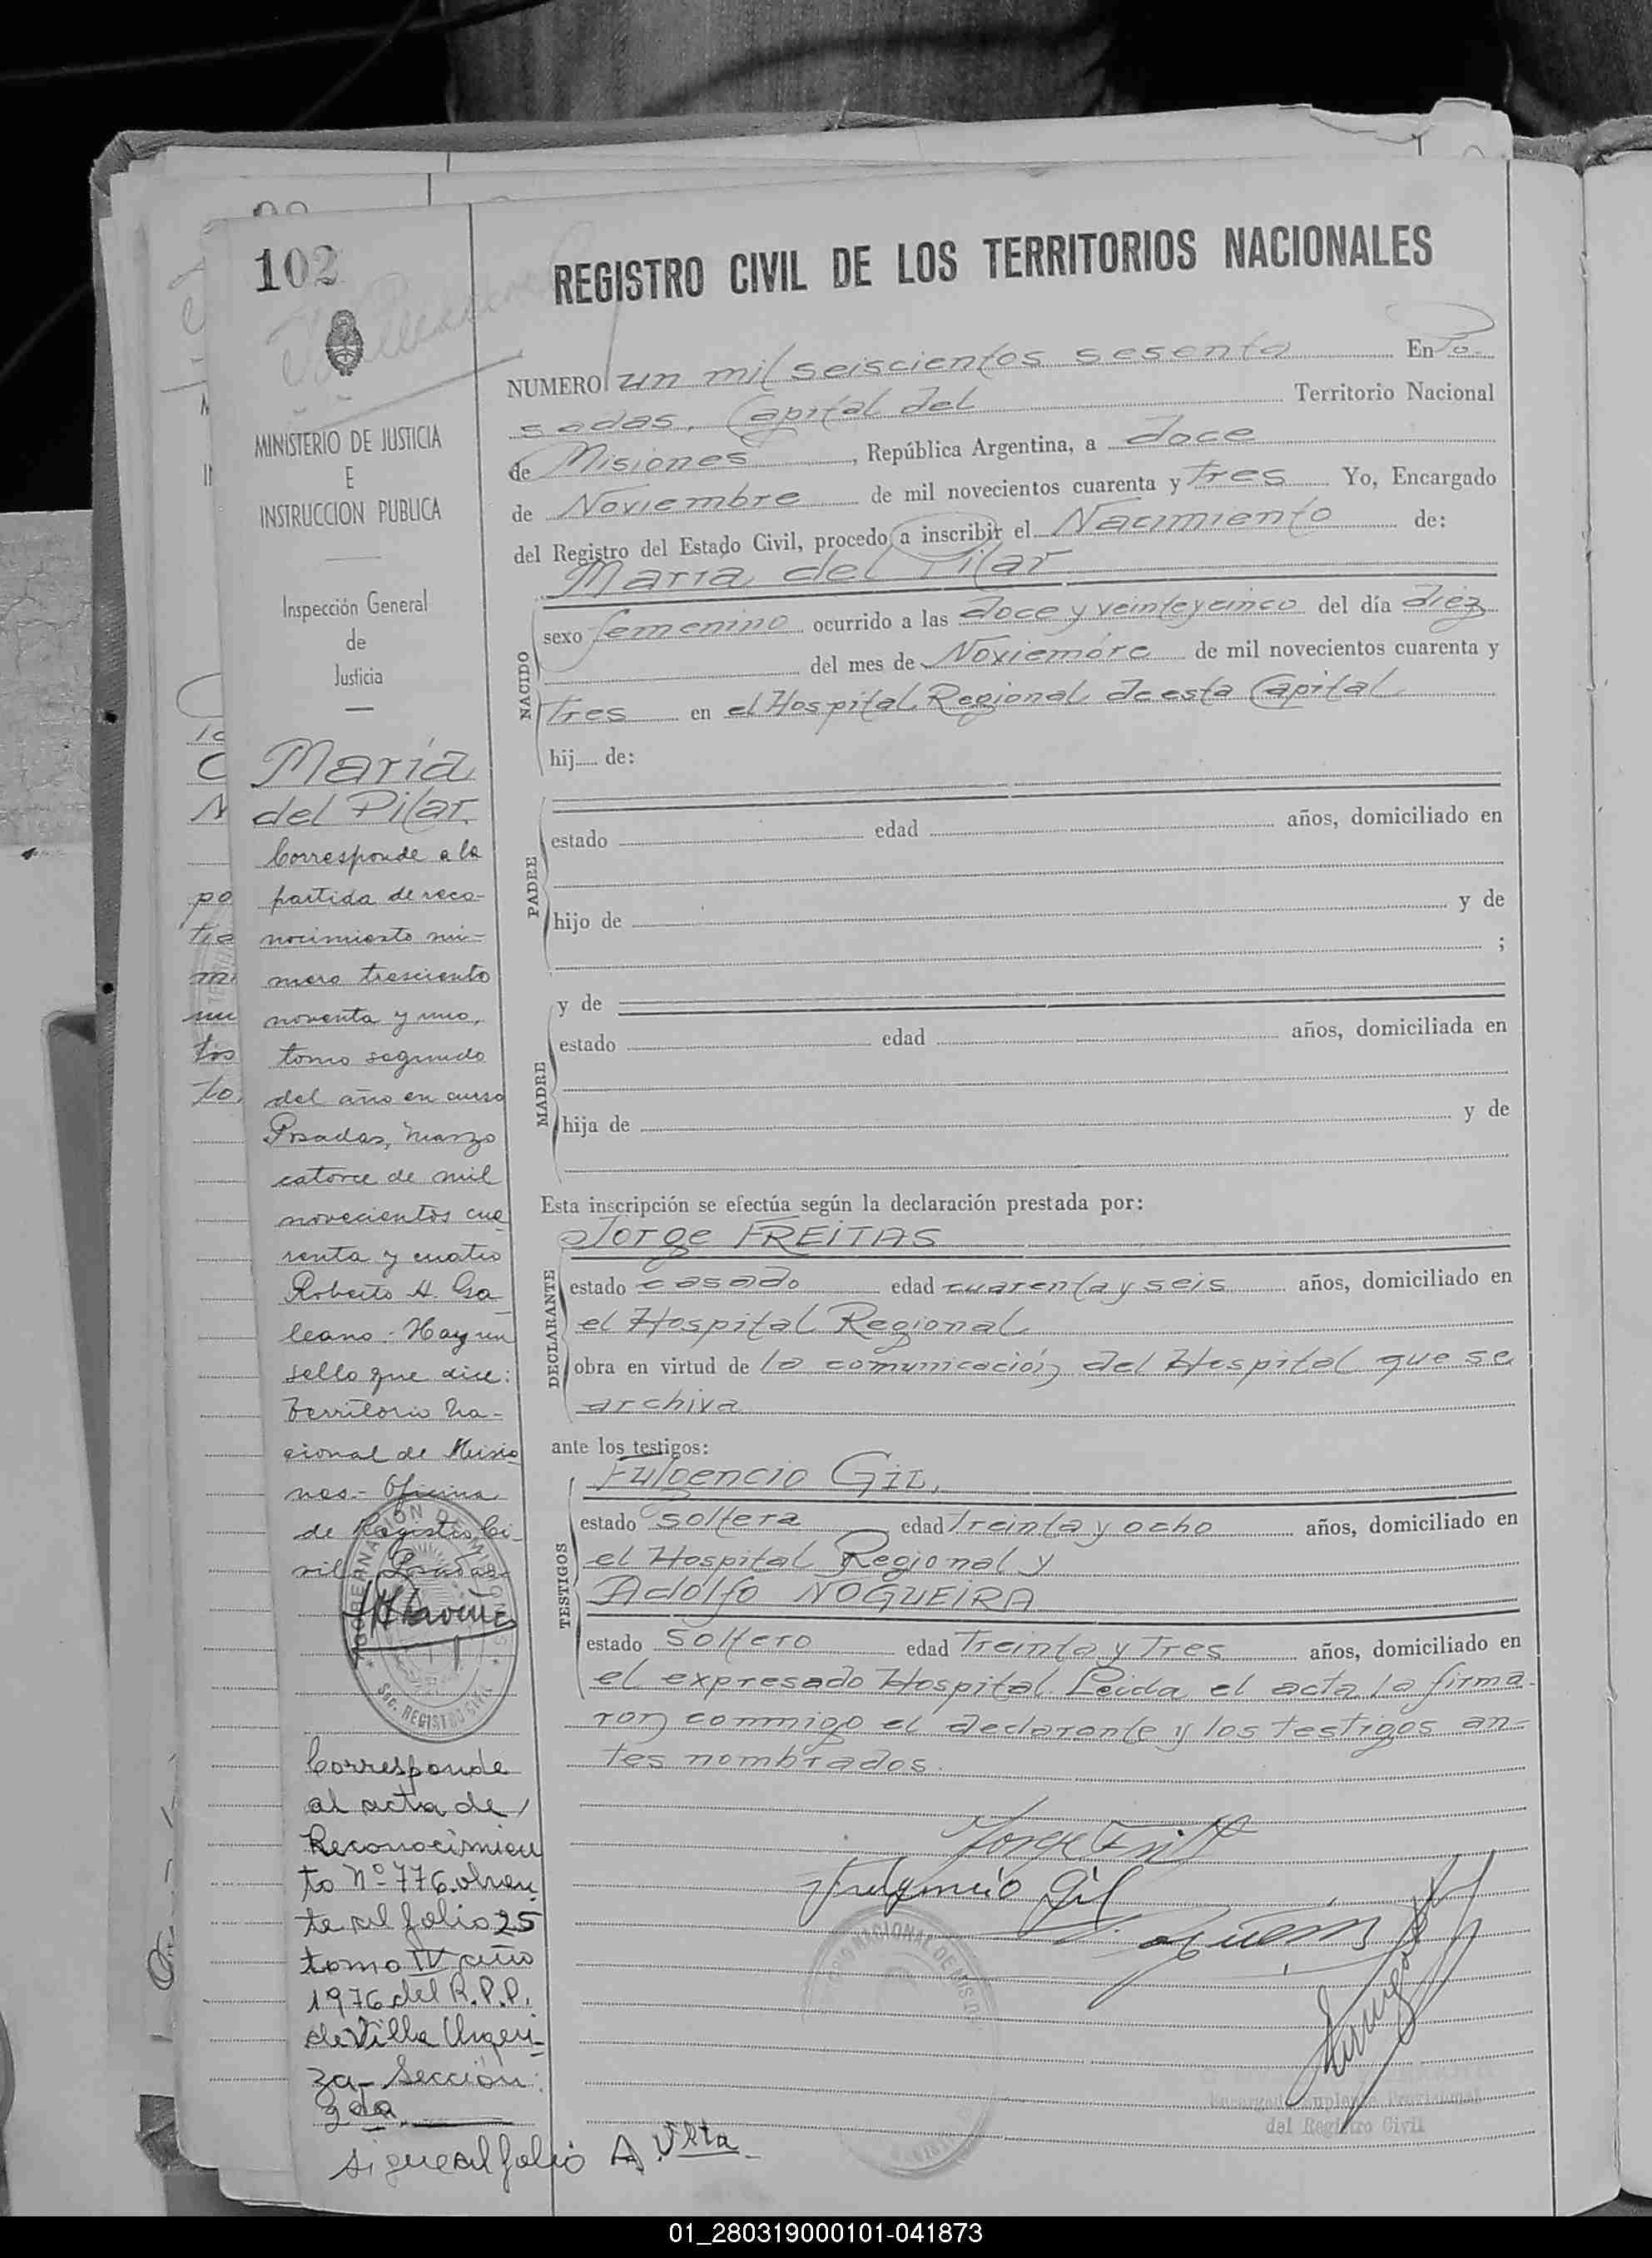 102
REGISTRO CIVIL DE LOS TERRITORIOS NACIONALES
MINISTERIO DE JUSTICIA
E
INSTRUCCION PUBLICA
Inspección General
de
Justicia
María
del Pilar.
Corresponde a la
partida de reco-
nocimiento nú-
mero tresciento
noventa y uno,
tomo segundo
del año en curso
Posadas, Marzo
catorce de mil
novecientos cua
renta y cuatro
Roberto H. Ga
leano - Hay un
sello que dice:
Territorio Na-
cional de Misio
nes - Oficina
de Registro Ci-
vil - Posadas
Corresponde
al acta de
Reconocimien
to Nº 776 obran
te al folio 25
tomo IV año
1976 del R.P.P.
de Villa Urqui-
za - Sección
2da.
sigue al folio A Vlta
NUMERO un mil seiscientos sesenta En Po-
sadas, Capital del Territorio Nacional
de Misiones, República Argentina, a doce
de Noviembre de mil novecientos cuarenta y tres Yo, Encargado
del Registro del Estado Civil, procedo a inscribir el Nacimiento de:
María del Pilar
NACIDO
sexo femenino ocurrido a las doce y veinteycinco del día diez
del mes de Noviembre de mil novecientos cuarenta y
tres en el Hospital Regional de esta Capital
hij de:
PADRE
estado edad años, domiciliado en
hijo de y de
;
y de
MADRE
estado edad años, domiciliada en
hija de y de
Esta inscripción se efectúa según la declaración prestada por:
Jorge FREITAS
DECLARANTE
estado casado edad cuarenta y seis años, domiciliado en
el Hospital Regional
obra en virtud de la comunicación del Hospital que se
archiva
ante los testigos:
Fulgencio GIL,
TESTIGOS
estado soltera edad treinta y ocho años, domiciliado en
el Hospital Regional y
Adolfo NOGUEIRA
estado soltero edad treinta y tres años, domiciliado en
el expresado Hospital. Leída el acta la firma-
ron conmigo el declarante y los testigos an-
tes nombrados.
Fulgencio Gil
Encargado Suplente Provisional
del Registro Civil
01_280319000101-041873